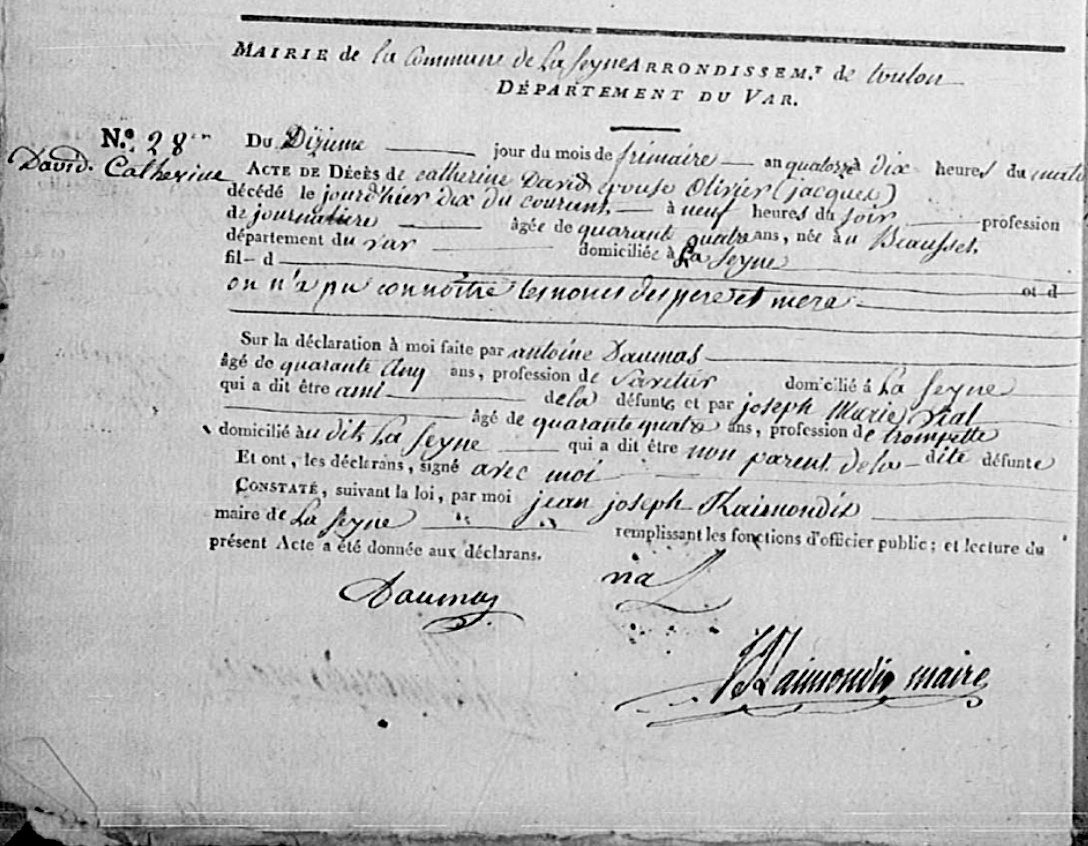 MAIRIE de la Commune de La Seyne ARRONDISSEM.T de toulon
DÉPARTEMENT DU VAR.
N.º 28
David. Catherine
Du Dizieme jour du mois de frimaire an quatorze à dix heures du matin
ACTE DE DÉCÈS de catherine David epouse Olivier (jacques)
décédé le jourd'hier dix du courant, à neuf heures du soir profession
de journaliere âgée de quarant quatre ans, née àu Beausset,
département du var domiciliée à La Seyne
fil- d et d
on n'a pu connoitre les noms des pere et mere
Sur la déclaration à moi faite par antoine Daumas
âgé de quarante cinq ans, profession de domicilié à La Seyne
qui a dit être ami de la défunte et par joseph Marie Vial
âgé de quarante quatre ans, profession de trompette
domicilié àu dit La Seyne qui a dit être non parent de la dite défunte
Et ont, les déclarans, signé avec moi
CONSTATÉ, suivant la loi, par moi jean joseph Raimondis
maire de La Seyne remplissant les fonctions d'officier public; et lecture du
présent Acte a été donnée aux déclarans.
Daumas
vial
Raimondis maire